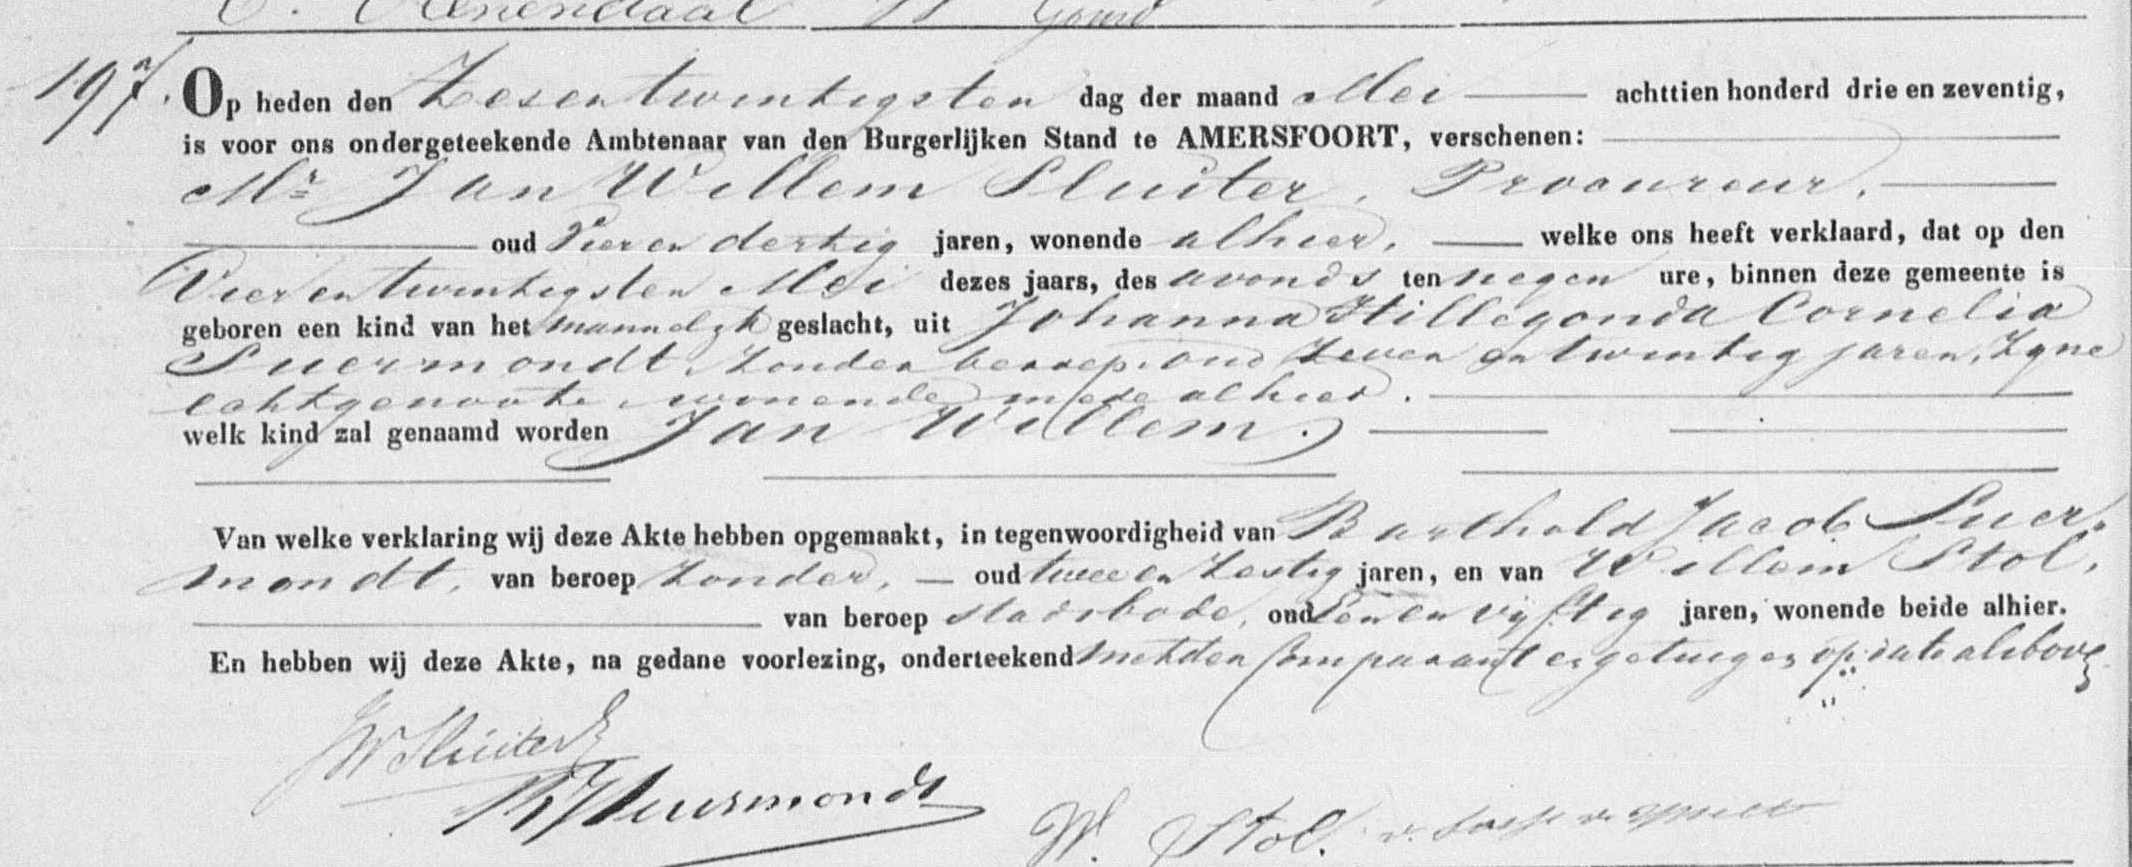 C. Veenendaal W Goud
197.
Op heden den Zesentwintigsten dag der maand Mei achttien honderd drie en zeventig,
is voor ons ondergeteekende Ambtenaar van den Burgerlijken Stand te AMERSFOORT, verschenen:
Mr Jan Willem Sluiter, Procureur,
oud Vier en dertig jaren, wonende alhier, welke ons heeft verklaard, dat op den
Vierentwintigsten Mei dezes jaars, des avonds ten negen ure, binnen deze gemeente is
geboren een kind van het mannelijk geslacht, uit Johanna Hillegonda Cornelia
Suermondt, zonder beroep, oud zeven en twintig jaren, zyne
echtgenoote, wonende mede alhier.
welk kind zal genaamd worden Jan Willem.
Van welke verklaring wij deze Akte hebben opgemaakt, in tegenwoordigheid van Barthold Jacob Suer-
mondt, van beroep zonder, oud twee en zestig jaren, en van Willem Stol,
van beroep stadsbode, oud Eenen vijftig jaren, wonende beide alhier.
En hebben wij deze Akte, na gedane voorlezing, onderteekend met den Comparant en getuigen op dato alsboven
JW Sluiter
BJ Suermondt
W. Stol.